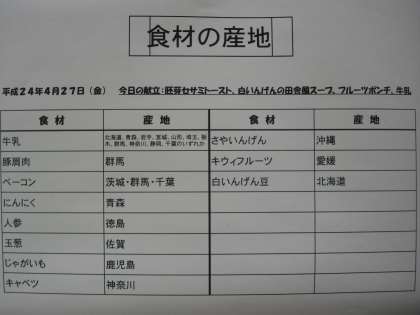 食材の産地
平成24年4月27日（金）　今日の献立：胚芽セサミトースト、白いんげんの田舎風スープ、フルーツポンチ、牛乳
食材　産地　食材　産地
牛乳　北海道、青森、岩手、宮城、山形、埼玉、栃木、群馬、神奈川、静岡、千葉のいずれか　さやいんげん　沖縄
豚肩肉　群馬　キウィフルーツ　愛媛
ベーコン　茨城・群馬・千葉　白いんげん豆　北海道
にんにく　青森
人参　徳島
玉葱　佐賀
じゃがいも　鹿児島
キャベツ　神奈川